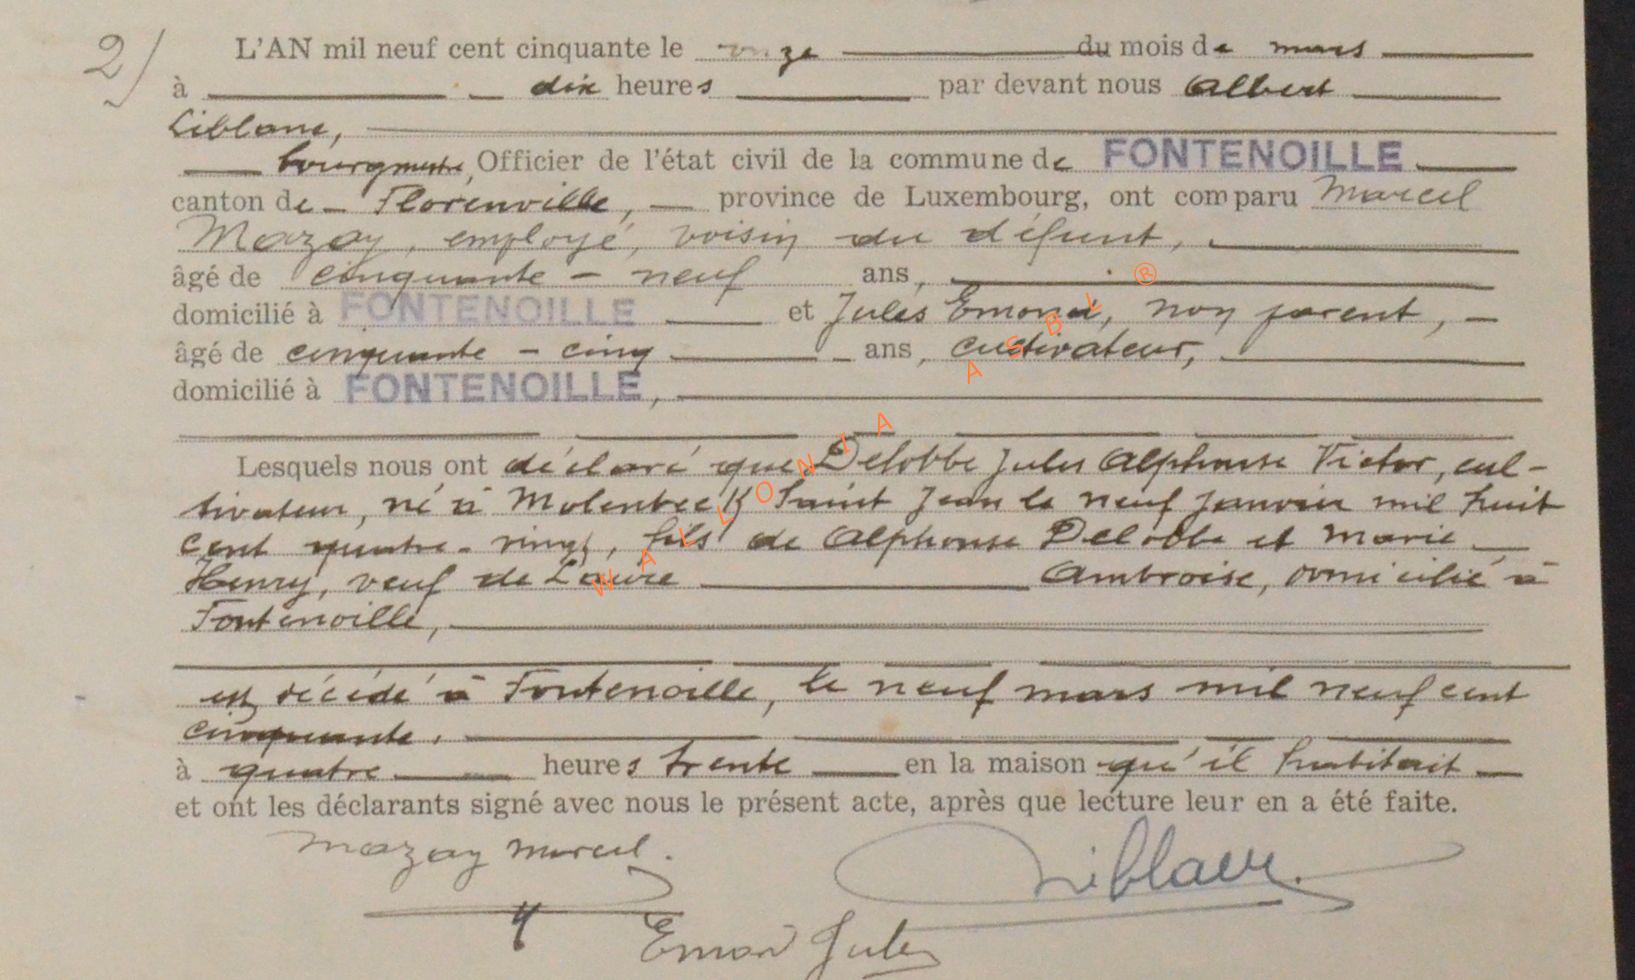 2/
L'AN mil neuf cent cinquante le onze du mois de mars
à dix heures par devant nous Albert
Liblanc,
bourgmestre, Officier de l'état civil de la commune de FONTENOILLE
canton de Florenville, province de Luxembourg, ont comparu Marcel
Mazay, employé, voisin du défunt,
âgé de cinquante-neuf ans,
domicilié à FONTENOILLE et Jules Emond, non parent,
âgé de cinquante-cinq ans, cultivateur,
domicilié à FONTENOILLE,
Lesquels nous ont déclaré que Delobbe Jules Alphonse Victor, cul-
tivateur, né à Molenbeek Saint Jean le neuf janvier mil huit
cent quatre-vingt, fils de Alphonse Delobbe et Marie
Henry, veuf de Laure Ambroise, domicilié à
Fontenoille,
est décédé à Fontenoille, le neuf mars mil neuf cent
cinquante.
à quatre heures trente en la maison qu'il habitait
et ont les déclarants signé avec nous le présent acte, après que lecture leur en a été faite.
Mazay Marcel.
Emond Jules
WALLONIA ASBL ®